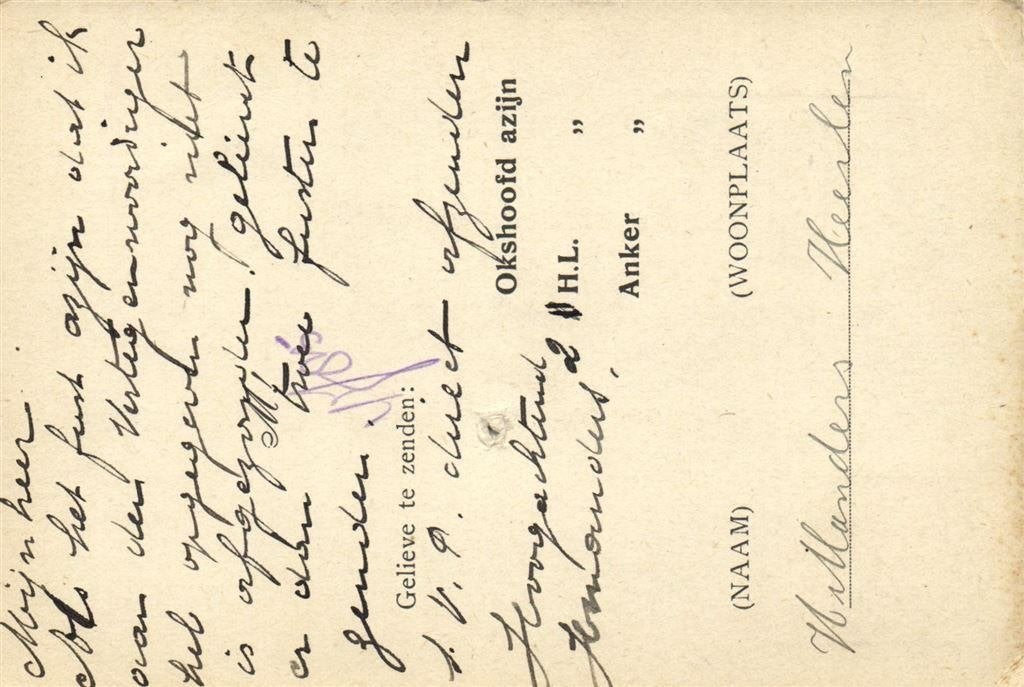 Mijnheer
Als het fust azijn dat ik
aan den Vertegenwoordiger
heb opgegeven nog niet
is afgezonden, gelieve
M. er dan twee fusten te
zenden.
Gelieve te zenden:
s. v. p. direct afzenden
Okshoofd azijn
Hoogachtend
2 H.L. „
HManders.
Anker „
(NAAM) (WOONPLAATS)
H Manders Heerlen